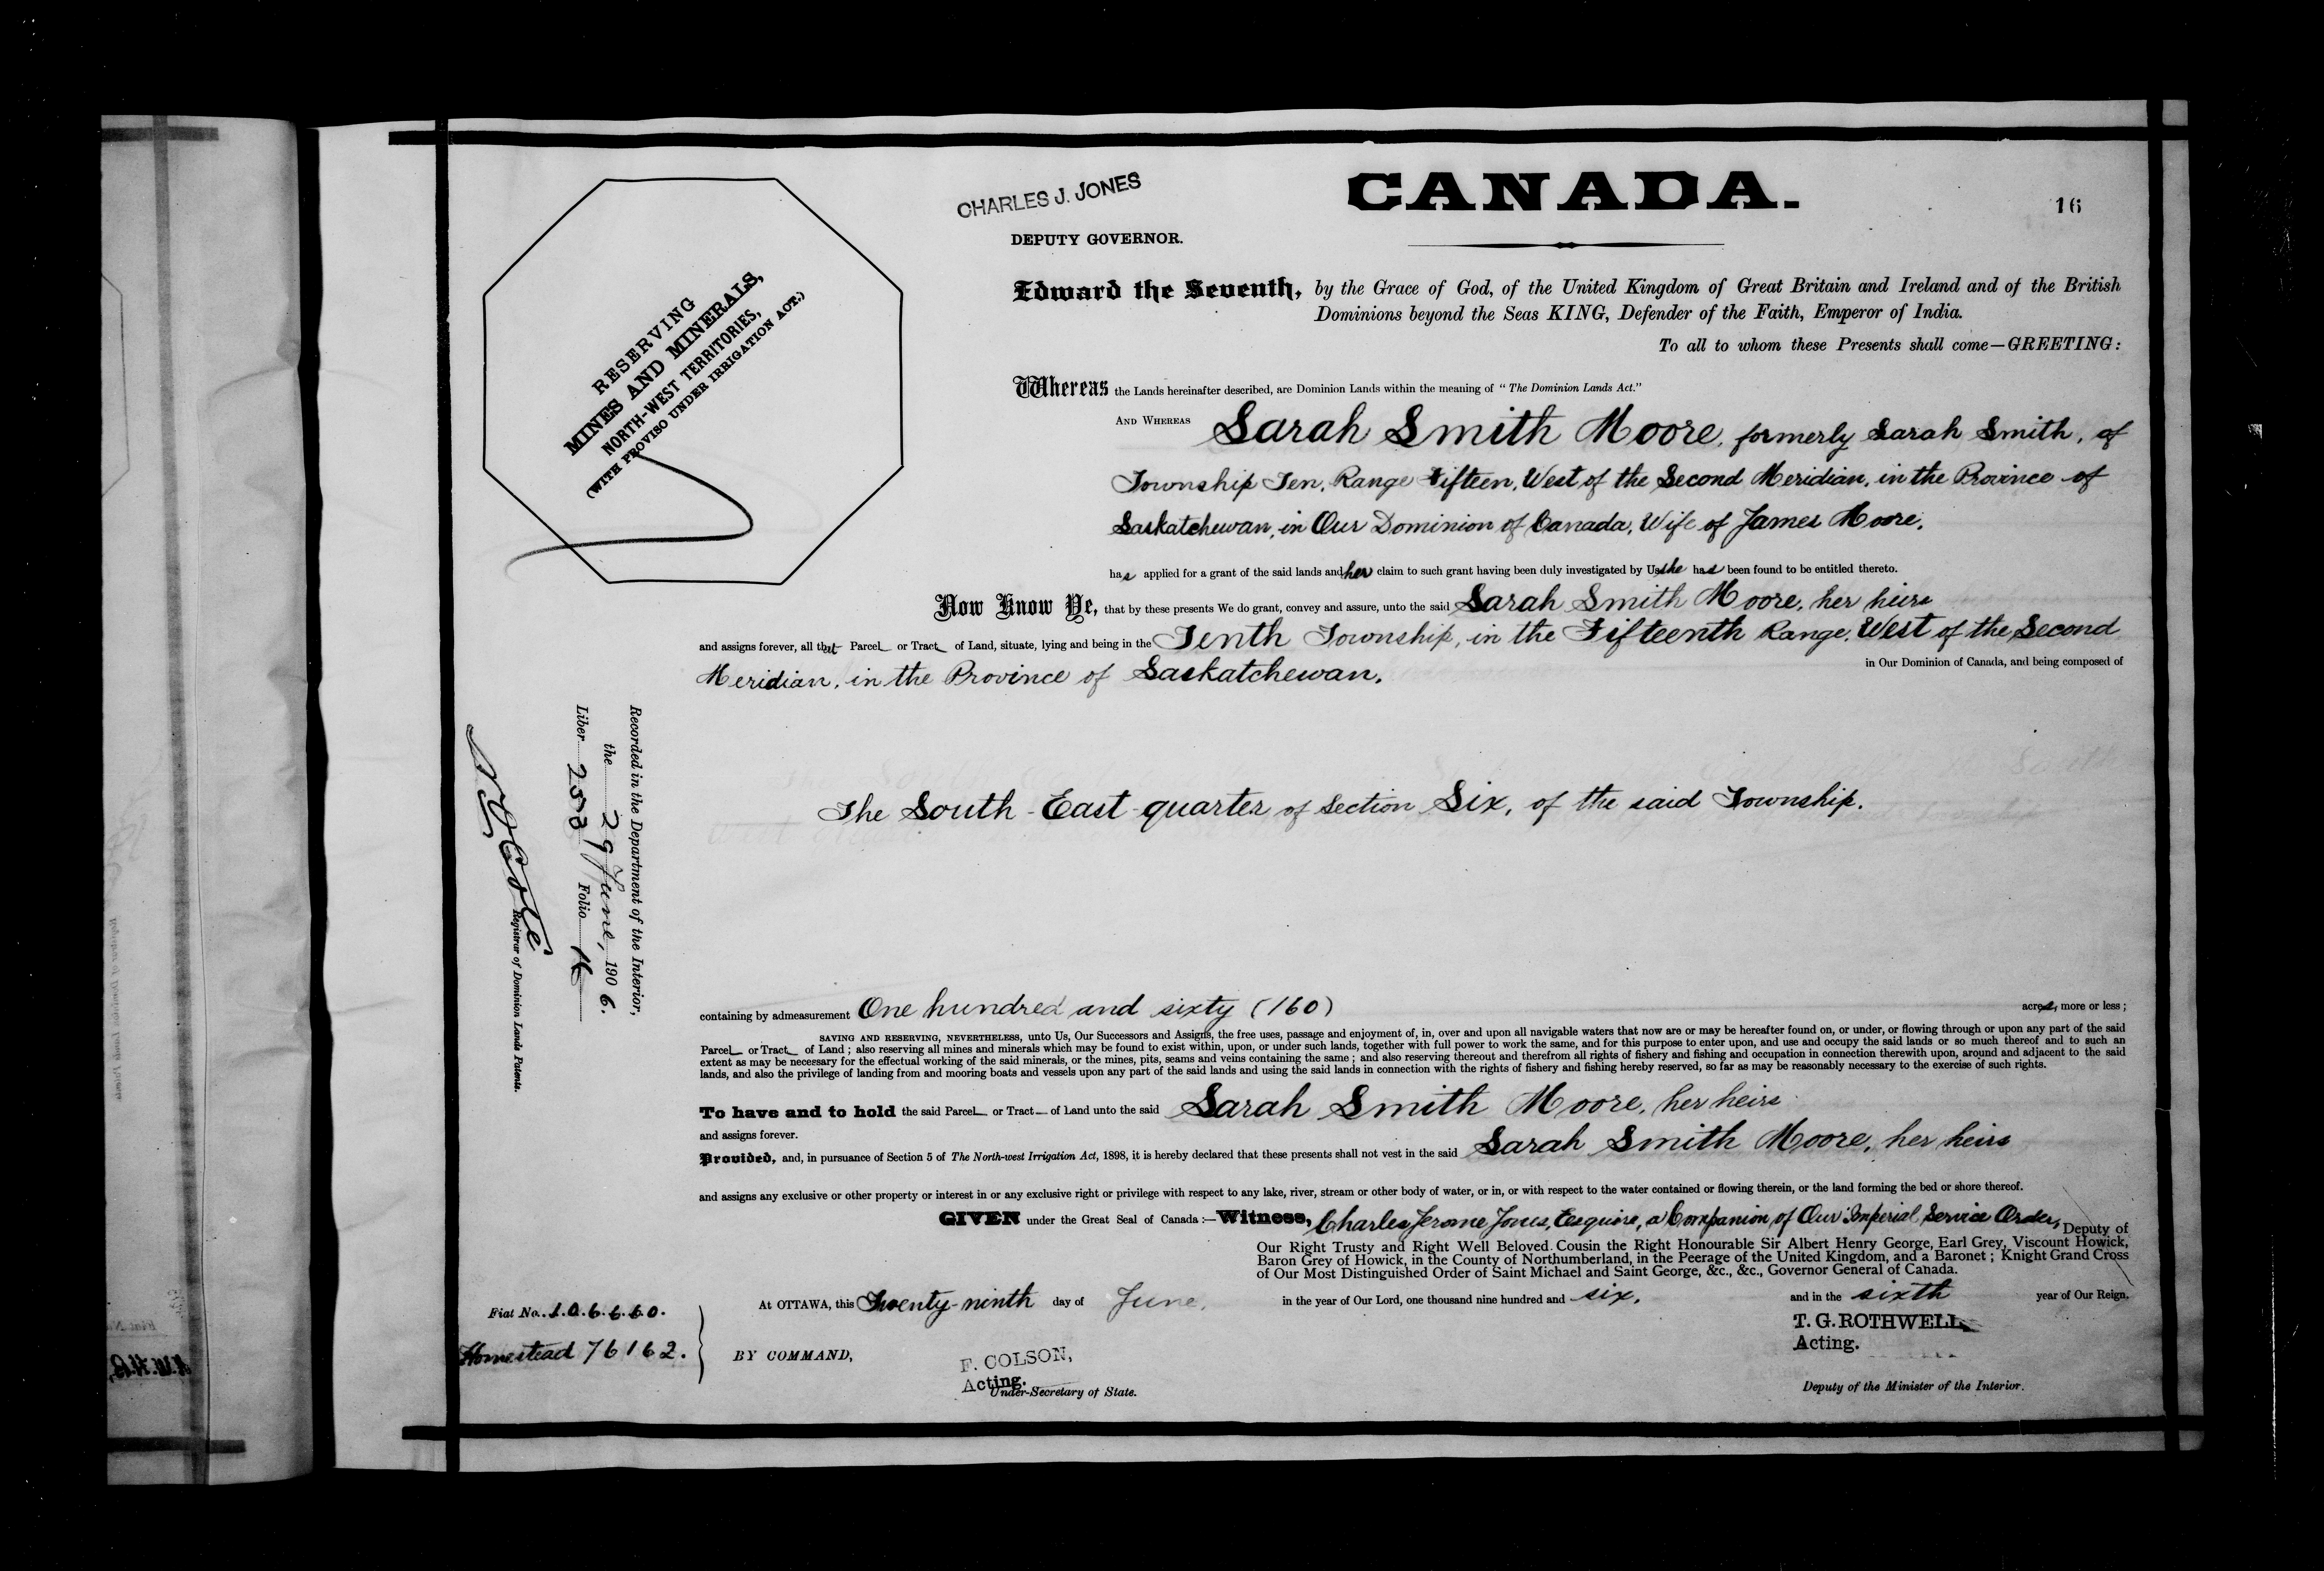 CANADA.
16
CHARLES J. JONES
DEPUTY GOVERNOR.
RESERVING
MINES AND MINERALS,
NORTH-WEST TERRITORIES,
(WITH PROVISO UNDER IRRIGATION ACT.)
Edward the Seventh, by the Grace of God, of the United Kingdom of Great Britain and Ireland and of the British
Dominions beyond the Seas KING, Defender of the Faith, Emperor of India.
To all to whom these Presents shall come—GREETING:
Whereas the Lands hereinafter described, are Dominion Lands within the meaning of "The Dominion Lands Act."
AND WHEREAS Sarah Smith Moore, formerly Sarah Smith, of
Township Ten, Range Fifteen, West of the Second Meridian, in the Province of
Saskatchewan, in Our Dominion of Canada, Wife of James Moore,
has applied for a grant of the said lands and her claim to such grant having been duly investigated by Us she has been found to be entitled thereto.
Now Know Ye, that by these presents We do grant, convey and assure, unto the said Sarah Smith Moore, her heirs
and assigns forever, all that Parcel or Tract of Land, situate, lying and being in the Tenth Township, in the Fifteenth Range, West of the Second
Meridian, in the Province of Saskatchewan, in Our Dominion of Canada, and being composed of
The South-East quarter of Section Six, of the said Township.
Recorded in the Department of the Interior,
the 29 June, 1906.
Liber Folio 16
Registrar of Dominion Lands Patents.
containing by admeasurement One hundred and sixty (160) acres, more or less;
SAVING AND RESERVING, NEVERTHELESS, unto Us, Our Successors and Assigns, the free uses, passage and enjoyment of, in, over and upon all navigable waters that now are or may be hereafter found on, or under, or flowing through or upon any part of the said
Parcel or Tract of Land; also reserving all mines and minerals which may be found to exist within, upon, or under such lands, together with full power to work the same, and for this purpose to enter upon, and use and occupy the said lands or so much thereof and to such an
extent as may be necessary for the effectual working of the said minerals, or the mines, pits, seams and veins containing the same; and also reserving thereout and therefrom all rights of fishery and fishing and occupation in connection therewith upon, around and adjacent to the said
lands, and also the privilege of landing from and mooring boats and vessels upon any part of the said lands and using the said lands in connection with the rights of fishery and fishing hereby reserved, so far as may be reasonably necessary to the exercise of such rights.
To have and to hold the said Parcel or Tract of Land unto the said Sarah Smith Moore, her heirs
and assigns forever.
Provided, and, in pursuance of Section 5 of The North-west Irrigation Act, 1898, it is hereby declared that these presents shall not vest in the said Sarah Smith Moore, her heirs
and assigns any exclusive or other property or interest in or any exclusive right or privilege with respect to any lake, river, stream or other body of water, or in, or with respect to the water contained or flowing therein, or the land forming the bed or shore thereof.
GIVEN under the Great Seal of Canada:—Witness, Charles Jerome Jones, Esquire, a Companion of Our Imperial Service Order, Deputy of
Our Right Trusty and Right Well Beloved Cousin the Right Honourable Sir Albert Henry George, Earl Grey, Viscount Howick,
Baron Grey of Howick, in the County of Northumberland, in the Peerage of the United Kingdom, and a Baronet; Knight Grand Cross
of Our Most Distinguished Order of Saint Michael and Saint George, &c., &c., Governor General of Canada.
At OTTAWA, this Twenty-ninth day of June, in the year of Our Lord, one thousand nine hundred and six, and in the sixth year of Our Reign.
Fiat No. 106660.
Homestead 76162.
BY COMMAND,
F. COLSON,
Acting.
Under-Secretary of State.
T. G. ROTHWELL
Acting.
Deputy of the Minister of the Interior.